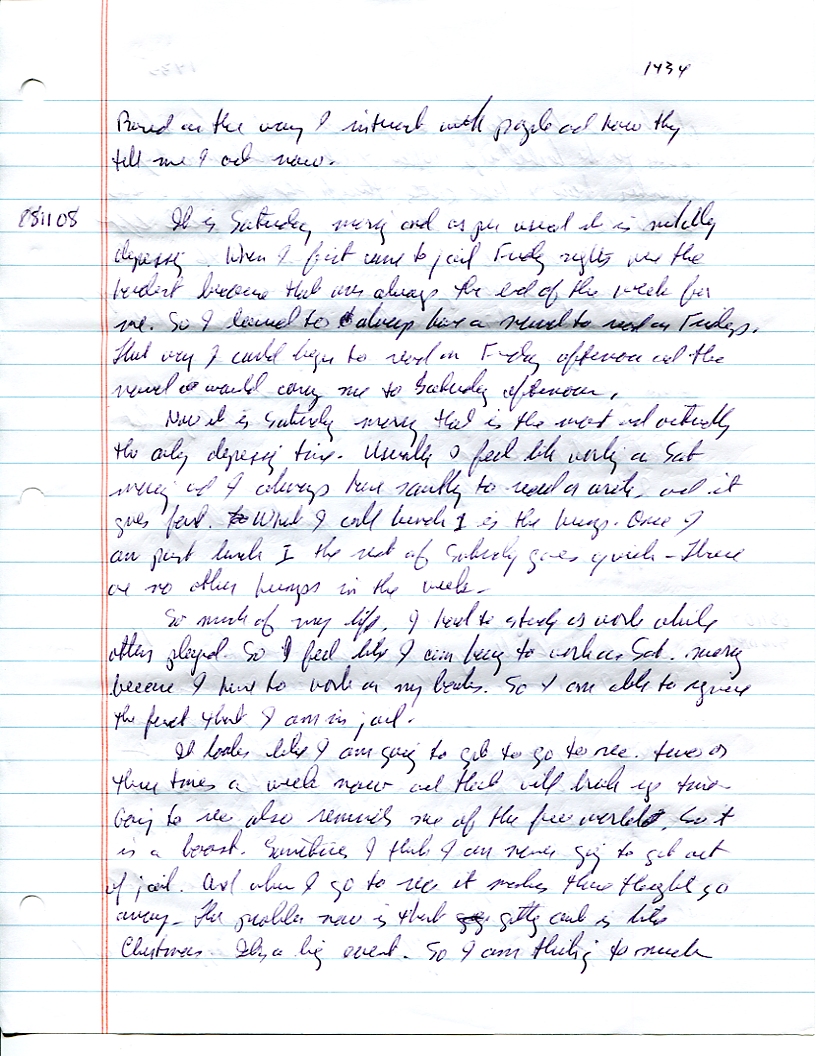 1434
Based on the way I interact with people and how they
tell me I act now.
081108
It is Saturday morning and as per usual it is mildly
depressing. When I first came to jail Friday nights were the
hardest because that was always the end of the week for
me. So I learned to always have a novel to read on Fridays.
That way I could begin to read on Friday afternoon and the
novel would carry me to Saturday afternoon.
Now it is Saturday morning that is the most and actually
the only depressing time. Usually I feel like working on Sat
morning and I always have something to read or write, and it
goes fast. What I call lunch I is the hump. Once I
am past lunch I the rest of Saturday goes quick - There
are no other humps in the week.
So much of my life, I had to study or work while
others played. So I feel like I am having to work on Sat. morning
because I have to work on my books. So I am able to ignore
the fact that I am in jail.
It looks like I am going to get to go to rec. two or
three times a week now and that will break up time
Going to rec also reminds me of the free world, so it
is a boost. Sometimes I think I am never going to get out
of jail. And when I go to rec it makes those thoughts go
away. The problem now is that getting out is like
Christmas. Its a big event. So I am thinking to much